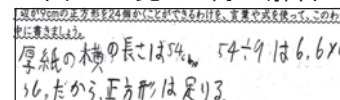 辺が9cmの正方形を24個かくことができるわけを、言葉や式を使って、このわ
中に書きましょう。
厚紙の横の長さは54。 54÷9は6,6×6
36,だから、正方形は足りる